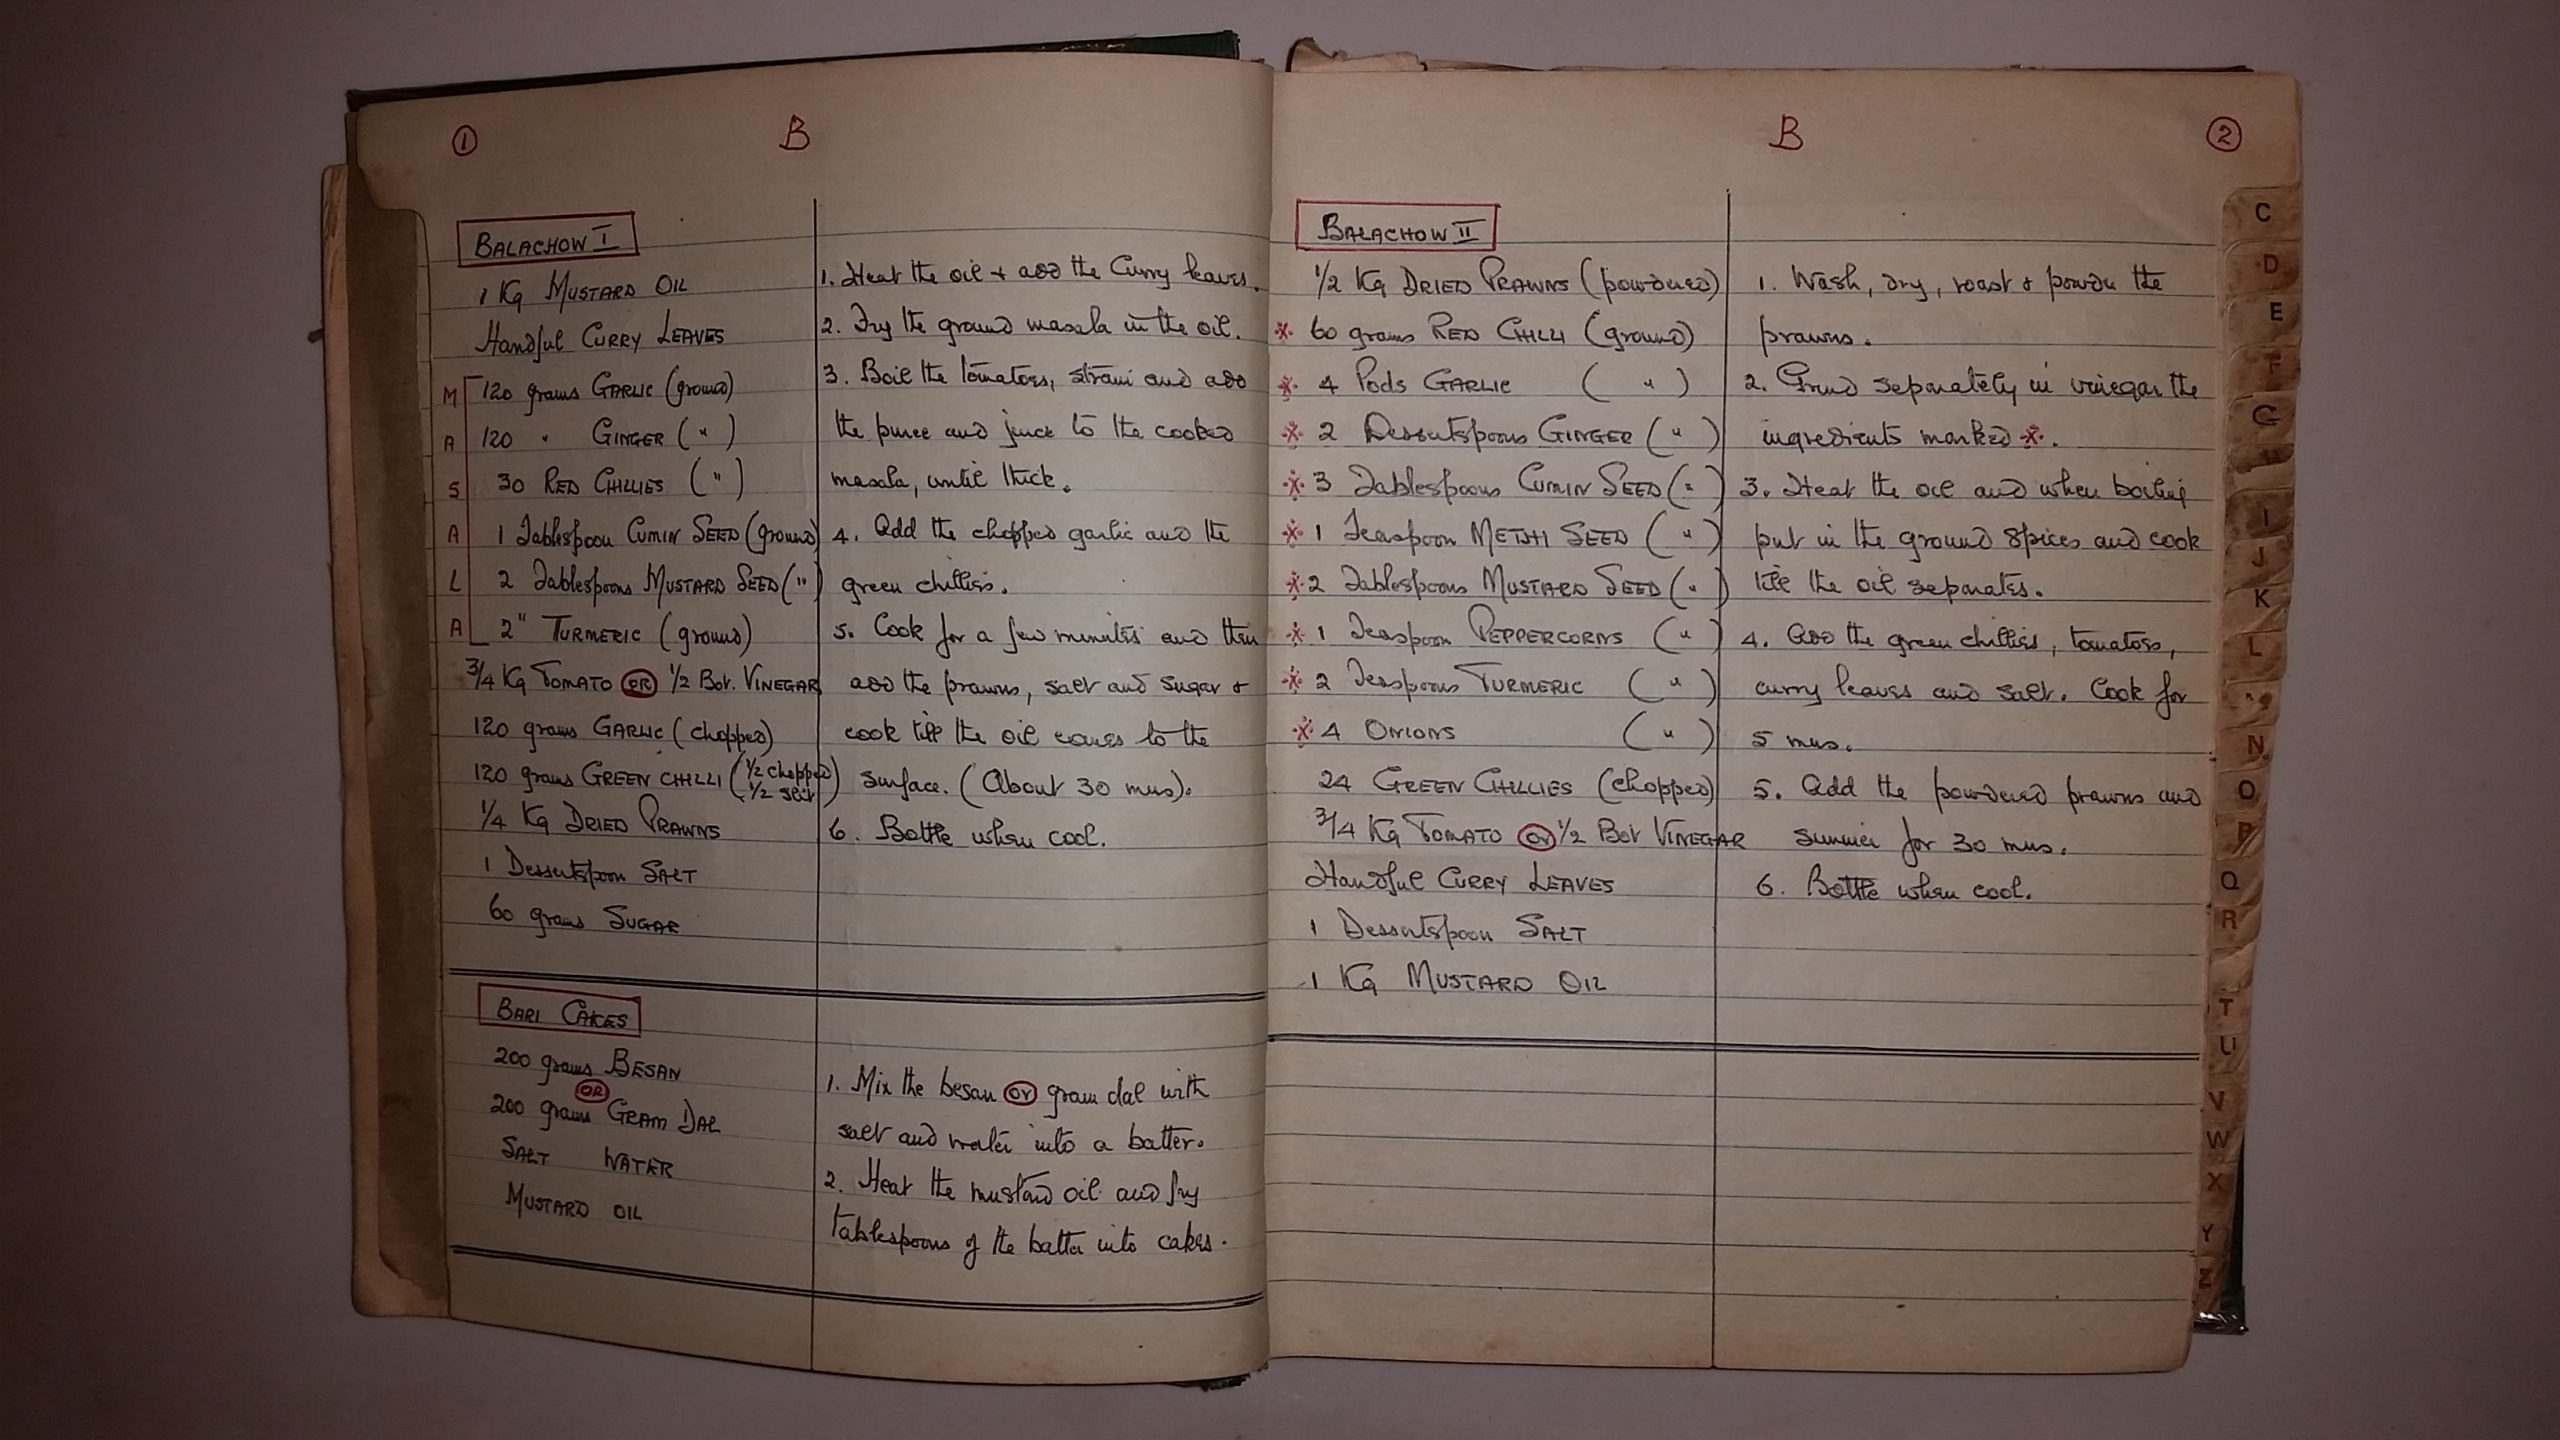 ① B
BALACHOW I
1 Kg MUSTARD OIL
Handful CURRY LEAVES
MASALA
120 grams GARLIC (ground)
120 " GINGER ( " )
30 RED CHILLIES ( " )
1 Tablespoon CUMIN SEED (ground)
2 Tablespoons MUSTARD SEED ( " )
2" TURMERIC (ground)
3/4 Kg TOMATO OR 1/2 BOT. VINEGAR
120 grams GARLIC (chopped)
120 grams GREEN CHILLI (1/2 chopped
1/2 slit)
1/4 Kg DRIED PRAWNS
1 Dessertspoon SALT
60 grams SUGAR
1. Heat the oil + add the Curry leaves.
2. Fry the ground masala in the oil.
3. Boil the tomatoes, strain and add
the puree and juice to the cooked
masala, until thick.
4. Add the chopped garlic and the
green chillies.
5. Cook for a few minutes and then
add the prawns, salt and sugar +
cook till the oil comes to the
surface. (About 30 mns).
6. Bottle when cool.
BARI CAKES
200 grams BESAN
OR
200 grams GRAM DAL
SALT WATER
MUSTARD OIL
1. Mix the besan or gram dal with
salt and water into a batter.
2. Heat the mustard oil and fry
tablespoons of the batter into cakes.
B ②
BALACHOW II
1/2 Kg DRIED PRAWNS (powdered)
※ 60 grams RED CHILLI (ground)
※ 4 Pods GARLIC ( " )
※ 2 Dessertspoons GINGER ( " )
※ 3 Tablespoons CUMIN SEED ( " )
※ 1 Teaspoon METHI SEED ( " )
※ 2 Tablespoons MUSTARD SEED ( " )
※ 1 Teaspoon PEPPERCORNS ( " )
※ 2 Teaspoons TURMERIC ( " )
※ 4 ONIONS ( " )
24 GREEN CHILLIES (chopped)
3/4 Kg TOMATO or 1/2 BOT VINEGAR
Handful CURRY LEAVES
1 Dessertspoon SALT
1 Kg MUSTARD OIL
1. Wash, dry, roast + powder the
prawns.
2. Grind separately in vinegar the
ingredients marked ※.
3. Heat the oil and when boiling
put in the ground spices and cook
till the oil separates.
4. Add the green chillies, tomatoes,
curry leaves and salt. Cook for
5 mns.
5. Add the powdered prawns and
simmer for 30 mns.
6. Bottle when cool.
C
D
E
F
G
H
I
J
K
L
N
O
P
Q
R
T
U
V
W
X
Y
Z